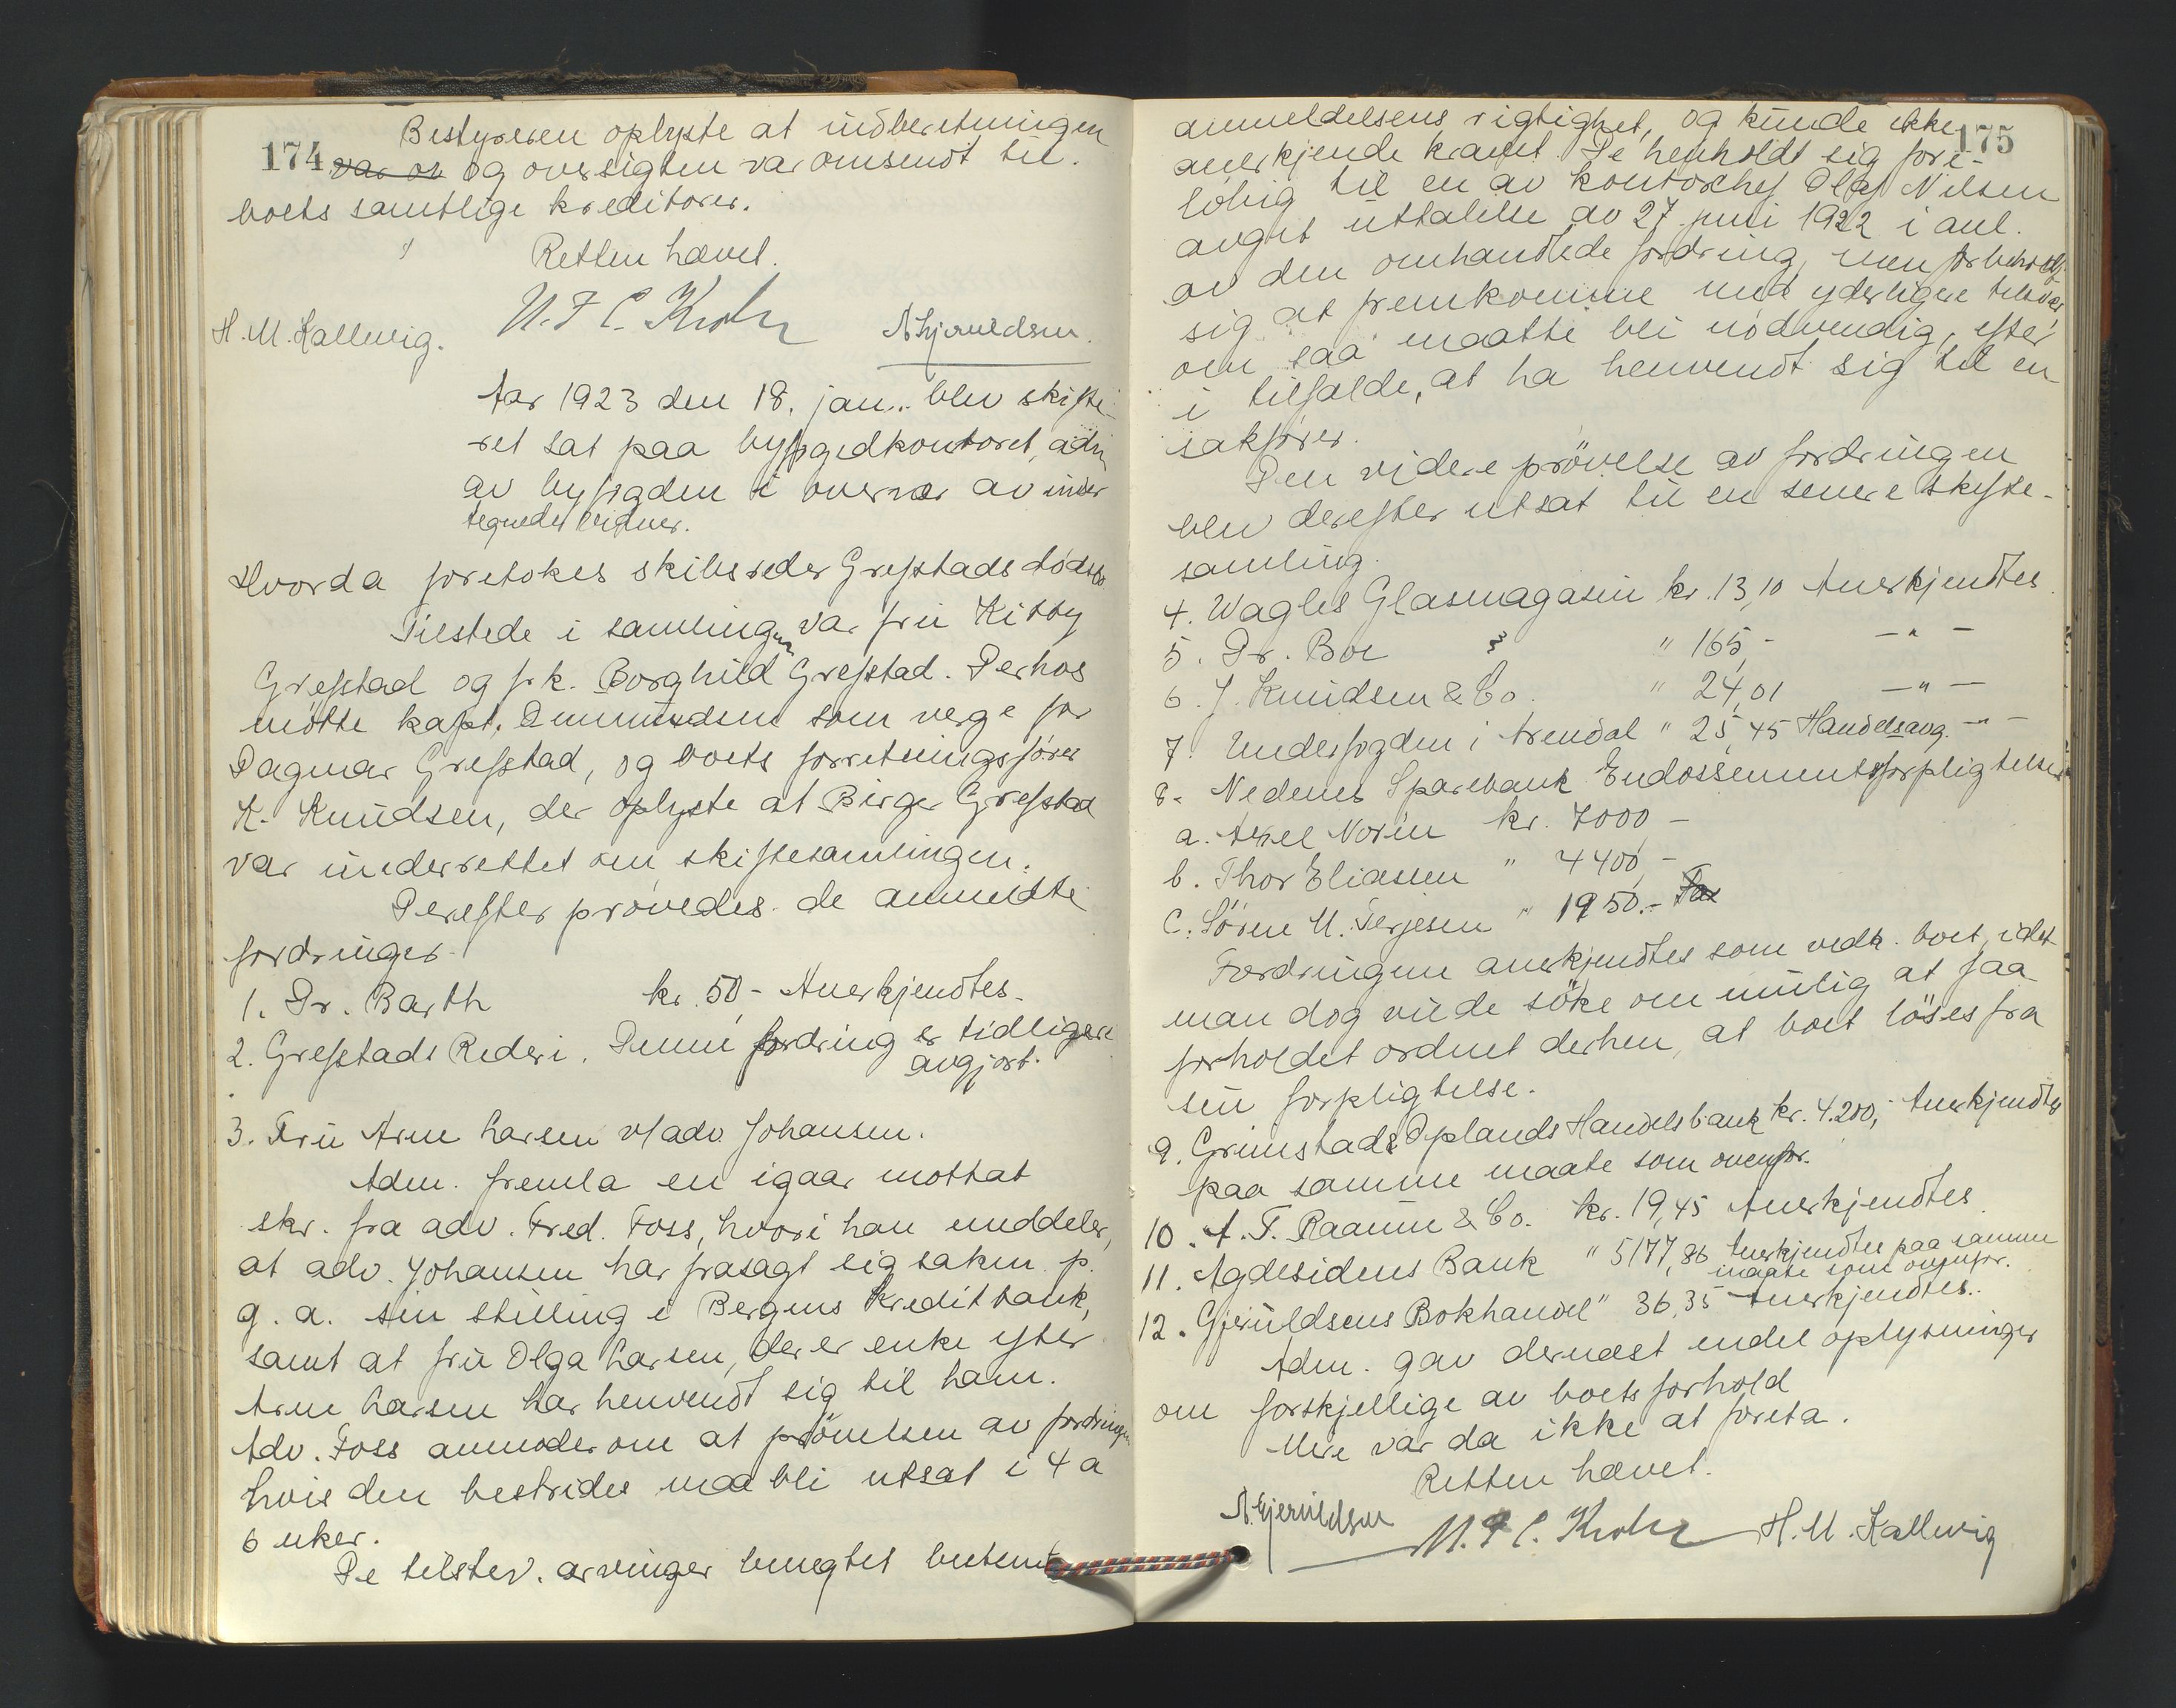 174
Bestyreren oplyste at indberetningen
var ov og oversigten var omsendt til
boets samtlige kreditorer.
Retten hævet.
H. M. Kallevig. N. F C. Krohn A Gjeruldsen.
Aar 1923 den 18. jan. blev skifte-
ret sat paa byfogedkontoret, adm
av byfogden i overvær av under
tegnede vidner.
Hvorda foretokes skibsreder Grefstads dødsbo
Tilstede i samlingen var fru Kitty
Grefstad og frk. Borghild Grefstad. Derhos
møtte kapt. Ommundsen som verge for
Dagmar Grefstad, og boets forretningsfører
K. Knudsen, der oplyste at Birger Grefstad
var underrettet om skiftesamlingen.
Derefter prøvedes de anmeldte
fordringer.
1. Dr. Barth kr. 50,- Anerkjendtes.
2. Grefstads Rederi. Denne fordring er tidligere
avgjort.
3. Fru Arne Larsen v/adv. Johansen.
Adm. fremla en igaar mottat
skr. fra adv. Fred. Foss, hvori han meddeler,
at adv. Johansen har frasagt sig saken p.
g. a. sin stilling i Bergens Kreditbank,
samt at fru Olga Larsen, der er enke efter
Arne Larsen har henvendt sig til ham.
Adv. Foss anmoder om at prøvelsen av fordringen
hvis den bestrides maa bli utsat i 4 a
6 uker.
De tilstev. arvinger benegtet bestemt
175
anmeldelsens rigtighet, og kunde ikke
anerkjende kravet. De henholdt sig fore-
løbig til en av kontorchef Olaf Nilsen
avgit uttalelse av 27 juni 1922 i anl.
av den omhandlede fordring, men forbeholdt
sig at fremkomme med yderligere tilsvar
om saa maatte bli nødvendig, efter
i tilfælde, at ha henvendt sig til en
sakfører.
Den videre prøvelse av fordringen
blev derefter utsat til en senere skifte-
samling.
4. Wagles Glasmagasin kr. 13,10 Anerkjendtes
5. Dr. Boe " 165,- —"—
6. J. Knudsen & Co. " 24,01 —"—
7. Underfogden i Arendal " 25,45 Handelsavg. —"—
8. Nedenes Sparebank Endossementsforpligtelser
a. Axel Norin kr. 7000 -
b. Thor Eliassen " 4400,-
c. Søren M. Terjesen " 1950.- For
Fordringene anerkjendtes som vedk. boet, idet
man dog vilde søke om mulig at faa
forholdet ordnet derhen, at boet løses fra
sin forpligtelse.
9. Grimstad & Oplands Handelsbank kr. 4.200,- Anerkjendtes
paa samme maate som ovenfor.
10. A. T. Raanm & Co. kr. 19,45 Anerkjendtes
11. Agdesidens Bank " 5177,86 Anerkjendtes paa samme
maate som ovenfor.
12. Gjeruldsens Bokhandel " 36,35 Anerkjendtes..
Adm. gav dernæst endel oplysninger
om forskjellige av boets forhold
Mere var da ikke at foreta.
Retten hævet.
A. Gjeruldsen N. F C. Krohn H. M. Kallevig